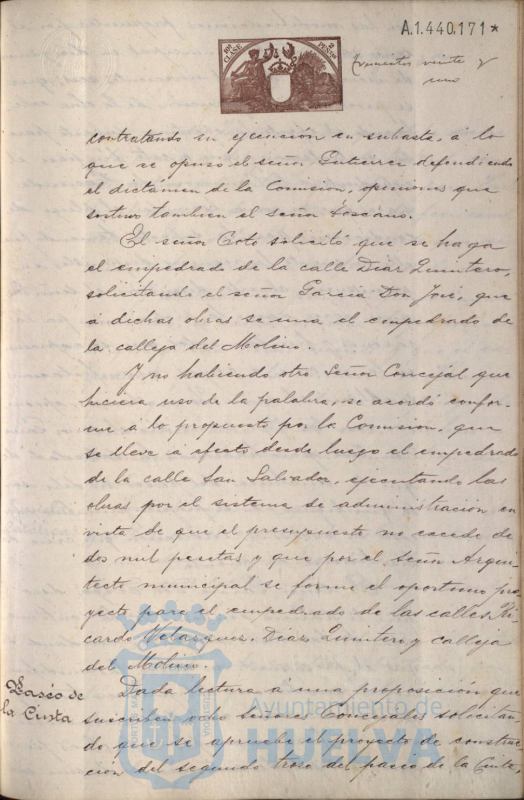 A.1.440.171*
10ª CLASE
2 PESETAS
veinte y
uno
contratando su ejecución en subasta, á lo
que se opuso el señor Gutierrez defendiendo
el dictámen de la Comision, opiniones que
sostuvo tambien el señor Toscano.
El señor Coto solicitó que se haga
el empedrado de la calle Diaz Quintero,
solicitando el señor Garcia Don José, que
á dichas obras se una el empedrado de
la calleja del Molino.
Y no habiendo otro Señor Concejál que
hiciera uso de la palabra, se acordó confor-
me á lo propuesto por la Comision, que
se lleve á efecto desde luego el empedrado
de la calle San Salvador, ejecutando las
obras por el sistema de administracion en
vista de que el presupuesto no excede de
dos mil pesetas y que por el Señor Arqui-
tecto municipal se forme el oportuno pro-
yecto para el empedrado de las calles Ri-
cardo Velazquez, Diaz Quintero y calleja
del Molino.
Paseo de
la Cinta
Dada lectura á una proposicion que
suscriben ocho señores Concejales solicitan-
do que se apruebe el proyecto de construc-
ción del segundo trozo del paseo de la Cinta,
Ayuntamiento de
HUELVA